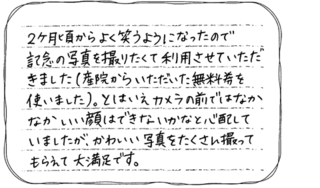 2ケ月頃からよく笑うようになったので
記念の写真を撮りたくて利用させていただ
きました(産院からいただいた無料券を
使いました)。とはいえカメラの前ではなか
なかいい顔はできないかなと心配して
いましたが、かわいい写真をたくさん撮って
もらえて大満足です。